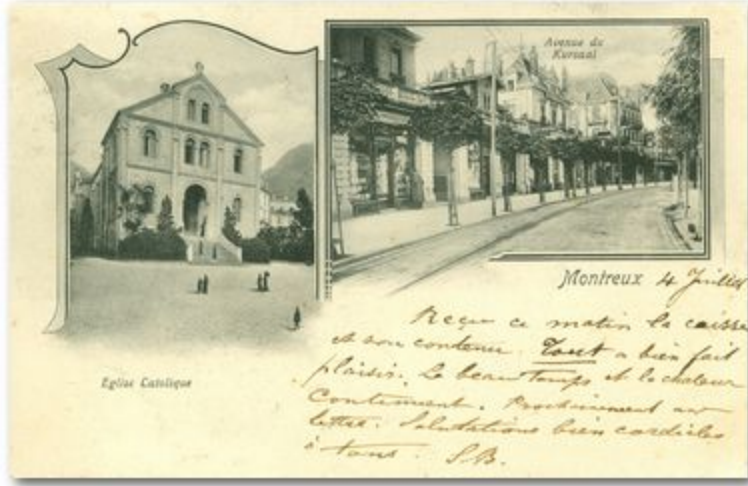 Avenue du
Kursaal
Montreux 4 Juillet
Reçu ce matin la caisse
et son contenu. Tout a bien fait
plaisir. Le beau temps et la chaleur
Continuent. Prochainement
lettre. Salutations bien cordiales
à tous. S.B.
Eglise Catolique